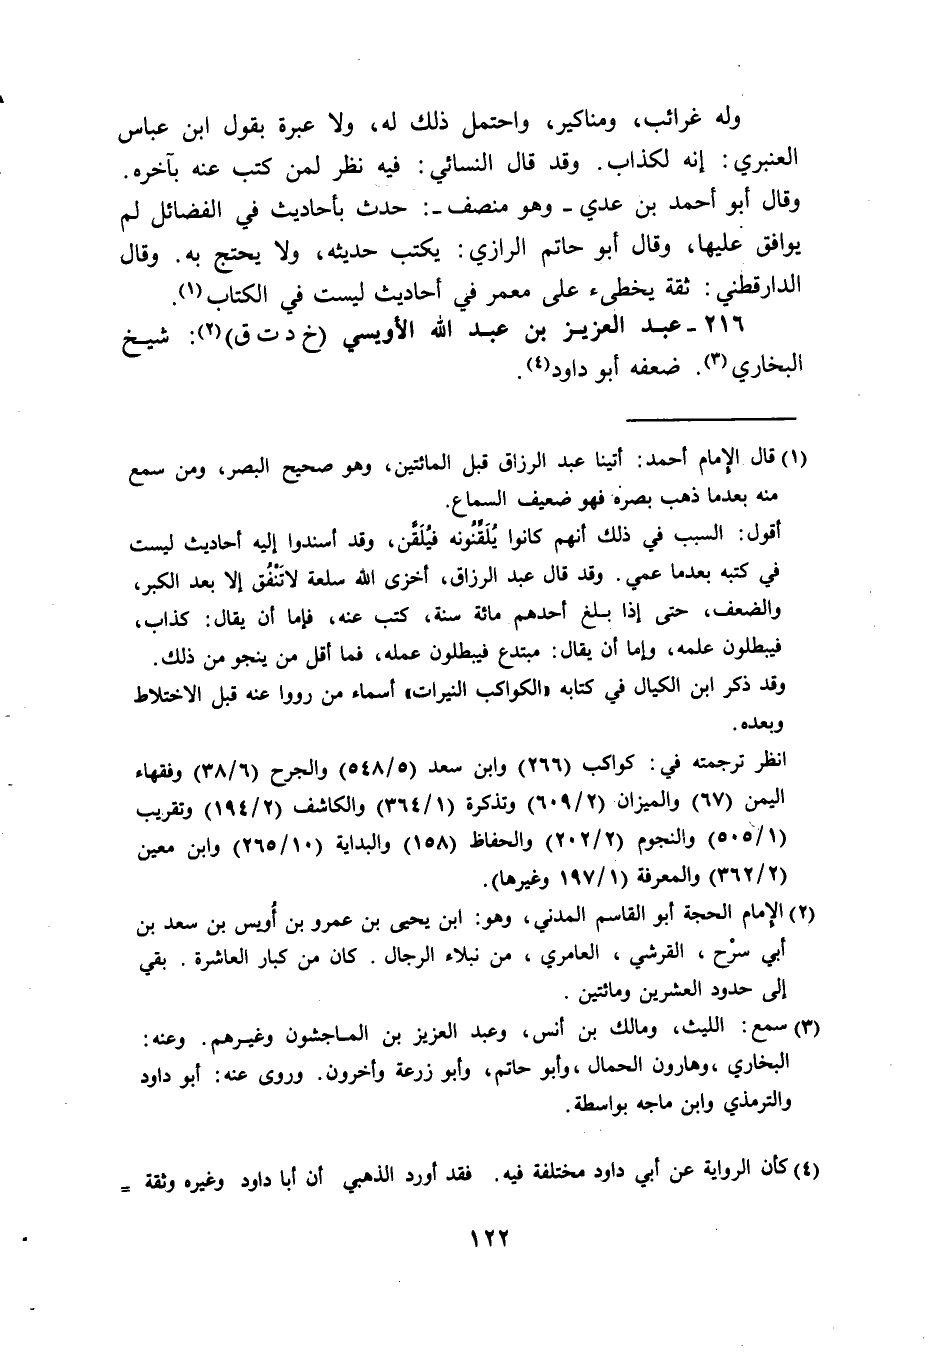 وله غرائب، ومناكير، واحتمل ذلك له، ولا عبرة بقول ابن عباس
العنبري: إنه لكذاب. وقد قال النسائي: فيه نظر لمن كتب عنه بآخره.
وقال أبو أحمد بن عدي ـ وهو منصف ـ: حدث بأحاديث في الفضائل لم
يوافق عليها، وقال أبو حاتم الرازي: يكتب حديثه، ولا يحتج به. وقال
الدارقطني: ثقة يخطىء على معمر في أحاديث ليست في الكتاب (١).
٢١٦ ـ عبد العزيز بن عبد الله الأويسي (خ د ت ق)(٢): شيخ
البخاري (٣). ضعفه أبو داود(٤).
(١) قال الإمام أحمد: أتينا عبد الرزاق قبل المائتين، وهو صحيح البصر، ومن سمع
منه بعدما ذهب بصره فهو ضعيف السماع.
أقول: السبب في ذلك أنهم كانوا يُلَقِّنُونه فَيُلَقَّن، وقد أسندوا إليه أحاديث ليست
في كتبه بعدما عمي. وقد قال عبد الرزاق، أخزى الله سلعة لاتَنْفُق إلا بعد الكبر،
والضعف، حتى إذا بلغ أحدهم مائة سنة، كتب عنه، فإما أن يقال: كذاب،
فيبطلون علمه، وإما أن يقال: مبتدع فيبطلون عمله، فما أقل من ينجو من ذلك.
وقد ذكر ابن الكيال في كتابه «الكواكب النيرات» أسماء من رووا عنه قبل الاختلاط
وبعده.
انظر ترجمته في: كواكب (٢٦٦) وابن سعد (٥٤٨/٥) والجرح (٣٨/٦) وفقهاء
اليمن (٦٧) والميزان (٦٠٩/٢) وتذكرة (٣٦٤/١) والكاشف (١٩٤/٢) وتقريب
(٥٠٥/١) والنجوم (٢٠٢/٢) والحفاظ (١٥٨) والبداية (٢٦٥/١٠) وابن معين
(٣٦٢/٢) والمعرفة (١٩٧/١ وغيرها).
(٢) الإمام الحجة أبو القاسم المدني، وهو: ابن يحيى بن عمرو بن أُويس بن سعد بن
أبي سرْح ، القرشي ، العامري ، من نبلاء الرجال . كان من كبار العاشرة . بقي
إلى حدود العشرين ومائتين .
(٣) سمع: الليث، ومالك بن أنس، وعبد العزيز بن الماجشون وغيرهم. وعنه:
البخاري ،وهارون الحمال ،وأبو حاتم، وأبو زرعة وأخرون. وروى عنه: أبو داود
والترمذي وابن ماجه بواسطة.
(٤) كأن الرواية عن أبي داود مختلفة فيه. فقد أورد الذهبي أن أبا داود وغيره وثقة =
١٢٢